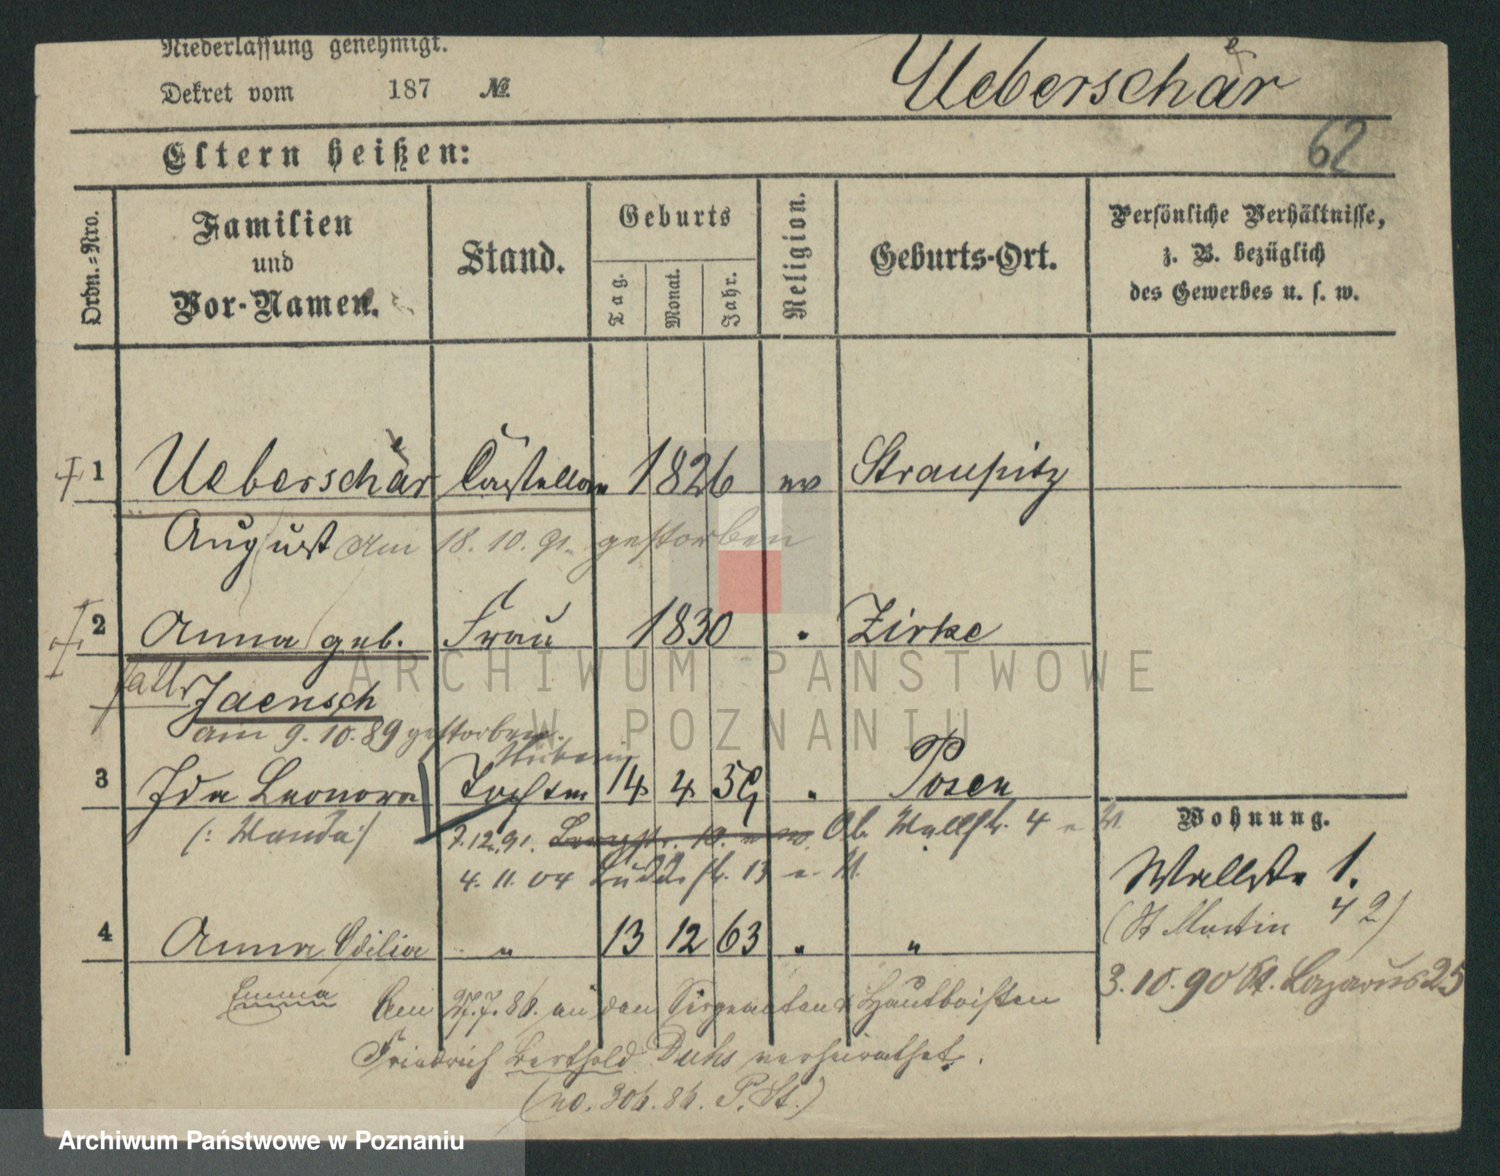 Niederlassung genehmigt.
Dekret vom 187 №
Ueberschär
e
62
Eltern heißen:
Ordn.=Nro.
Familien und Vor-Namen.
Stand.
Geburts
Tag.
Monat.
Jahr.
Religion.
Geburts-Ort.
Persönliche Verhältnisse, z. B. bezüglich des Gewerbes u. s. w.
1 Ueberschär Castellan 1826 ev Straupitz
e
August am 18. 10. 91. gestorben
2 Anna geb. Frau 1830 " Zirke
Jaensch
am 9. 10. 89 gestorben.
3 Ida Leonora Tochter 14 4 59 " Posen
(: Wanda :)
7.12.91. Ob. Wallstr. 4
4. 11. 04
4 Anna Odilia " 13 12 63 " "
Emma
Am 27.7.86. an den Sergeanten & Hautboisten
Friedrich Berthold Duhs verheirathet.
(no. 306. 86. P. St.)
Wohnung.
Wallstr. 1.
(St Martin 42)
3. 10. 90 St. Lazarus 25
ARCHIWUM PAŃSTWOWE
W POZNANIU
Archiwum Państwowe w Poznaniu